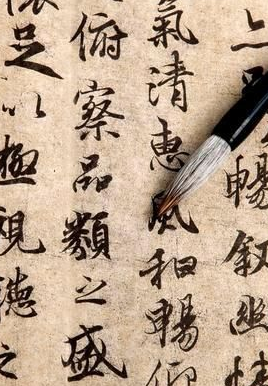 暢敘幽情
氣清惠風和暢仰
俯察品類之盛
懷足以極視聽之